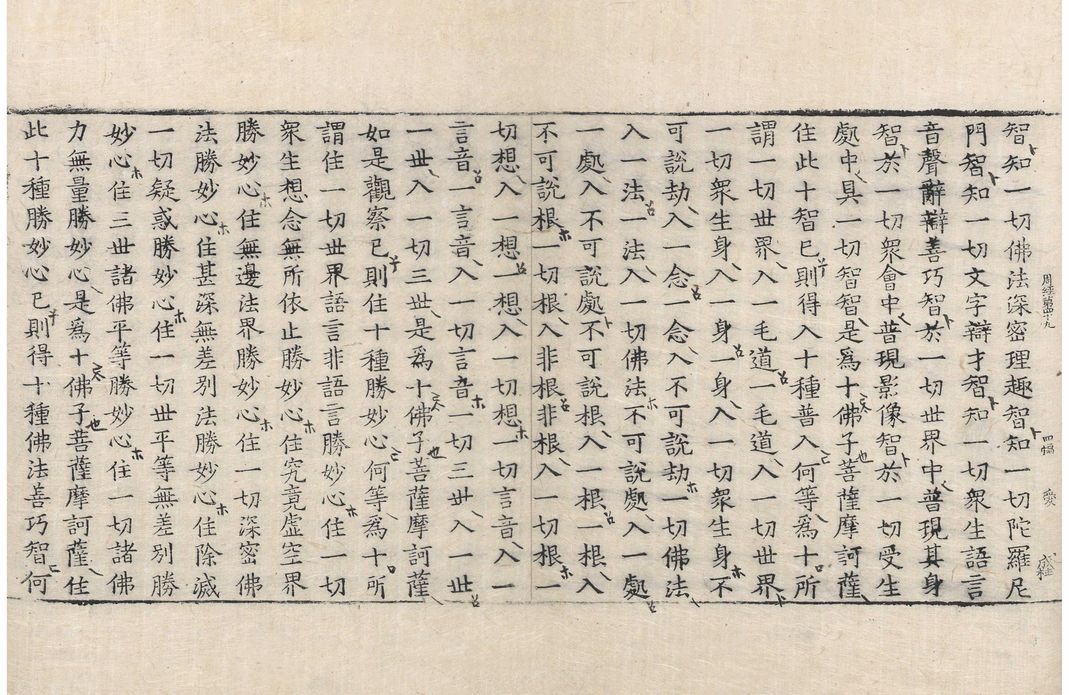 智知一切佛法深密理趣智知一切陀羅尼
門智知一切文字辯才智知一切衆生語言
音聲辭辯善巧智於一切世界中普現其身
智於一切衆會中普現影像智於一切受生
處中具一切智智是爲十佛子菩薩摩訶薩
住此十智已則得入十種普入何等爲十所
謂一切世界入一毛道一毛道入一切世界
一切衆生身入一身一身入一切衆生身不
可說劫入一念一念入不可說劫一切佛法
入一法一法入一切佛法不可說處入一處
一處入不可說處不可說根入一根一根入
不可說根一切根入非根非根入一切根一
切想入一想一想入一切想一切言音入一
言音一言音入一切言音一切三世入一世
一世入一切三世是爲十佛子菩薩摩訶薩
如是觀察已則住十種勝妙心何等爲十所
謂住一切世界語言非語言勝妙心住一切
衆生想念無所依止勝妙心住究竟虛空界
勝妙心住無邊法界勝妙心住一切深密佛
法勝妙心住甚深無差別法勝妙心住除滅
一切疑惑勝妙心住一切世平等無差別勝
妙心住三世諸佛平等勝妙心住一切諸佛
力無量勝妙心是爲十佛子菩薩摩訶薩住
此十種勝妙心已則得十種佛法善巧智何
周經第四十九 四幅 愛